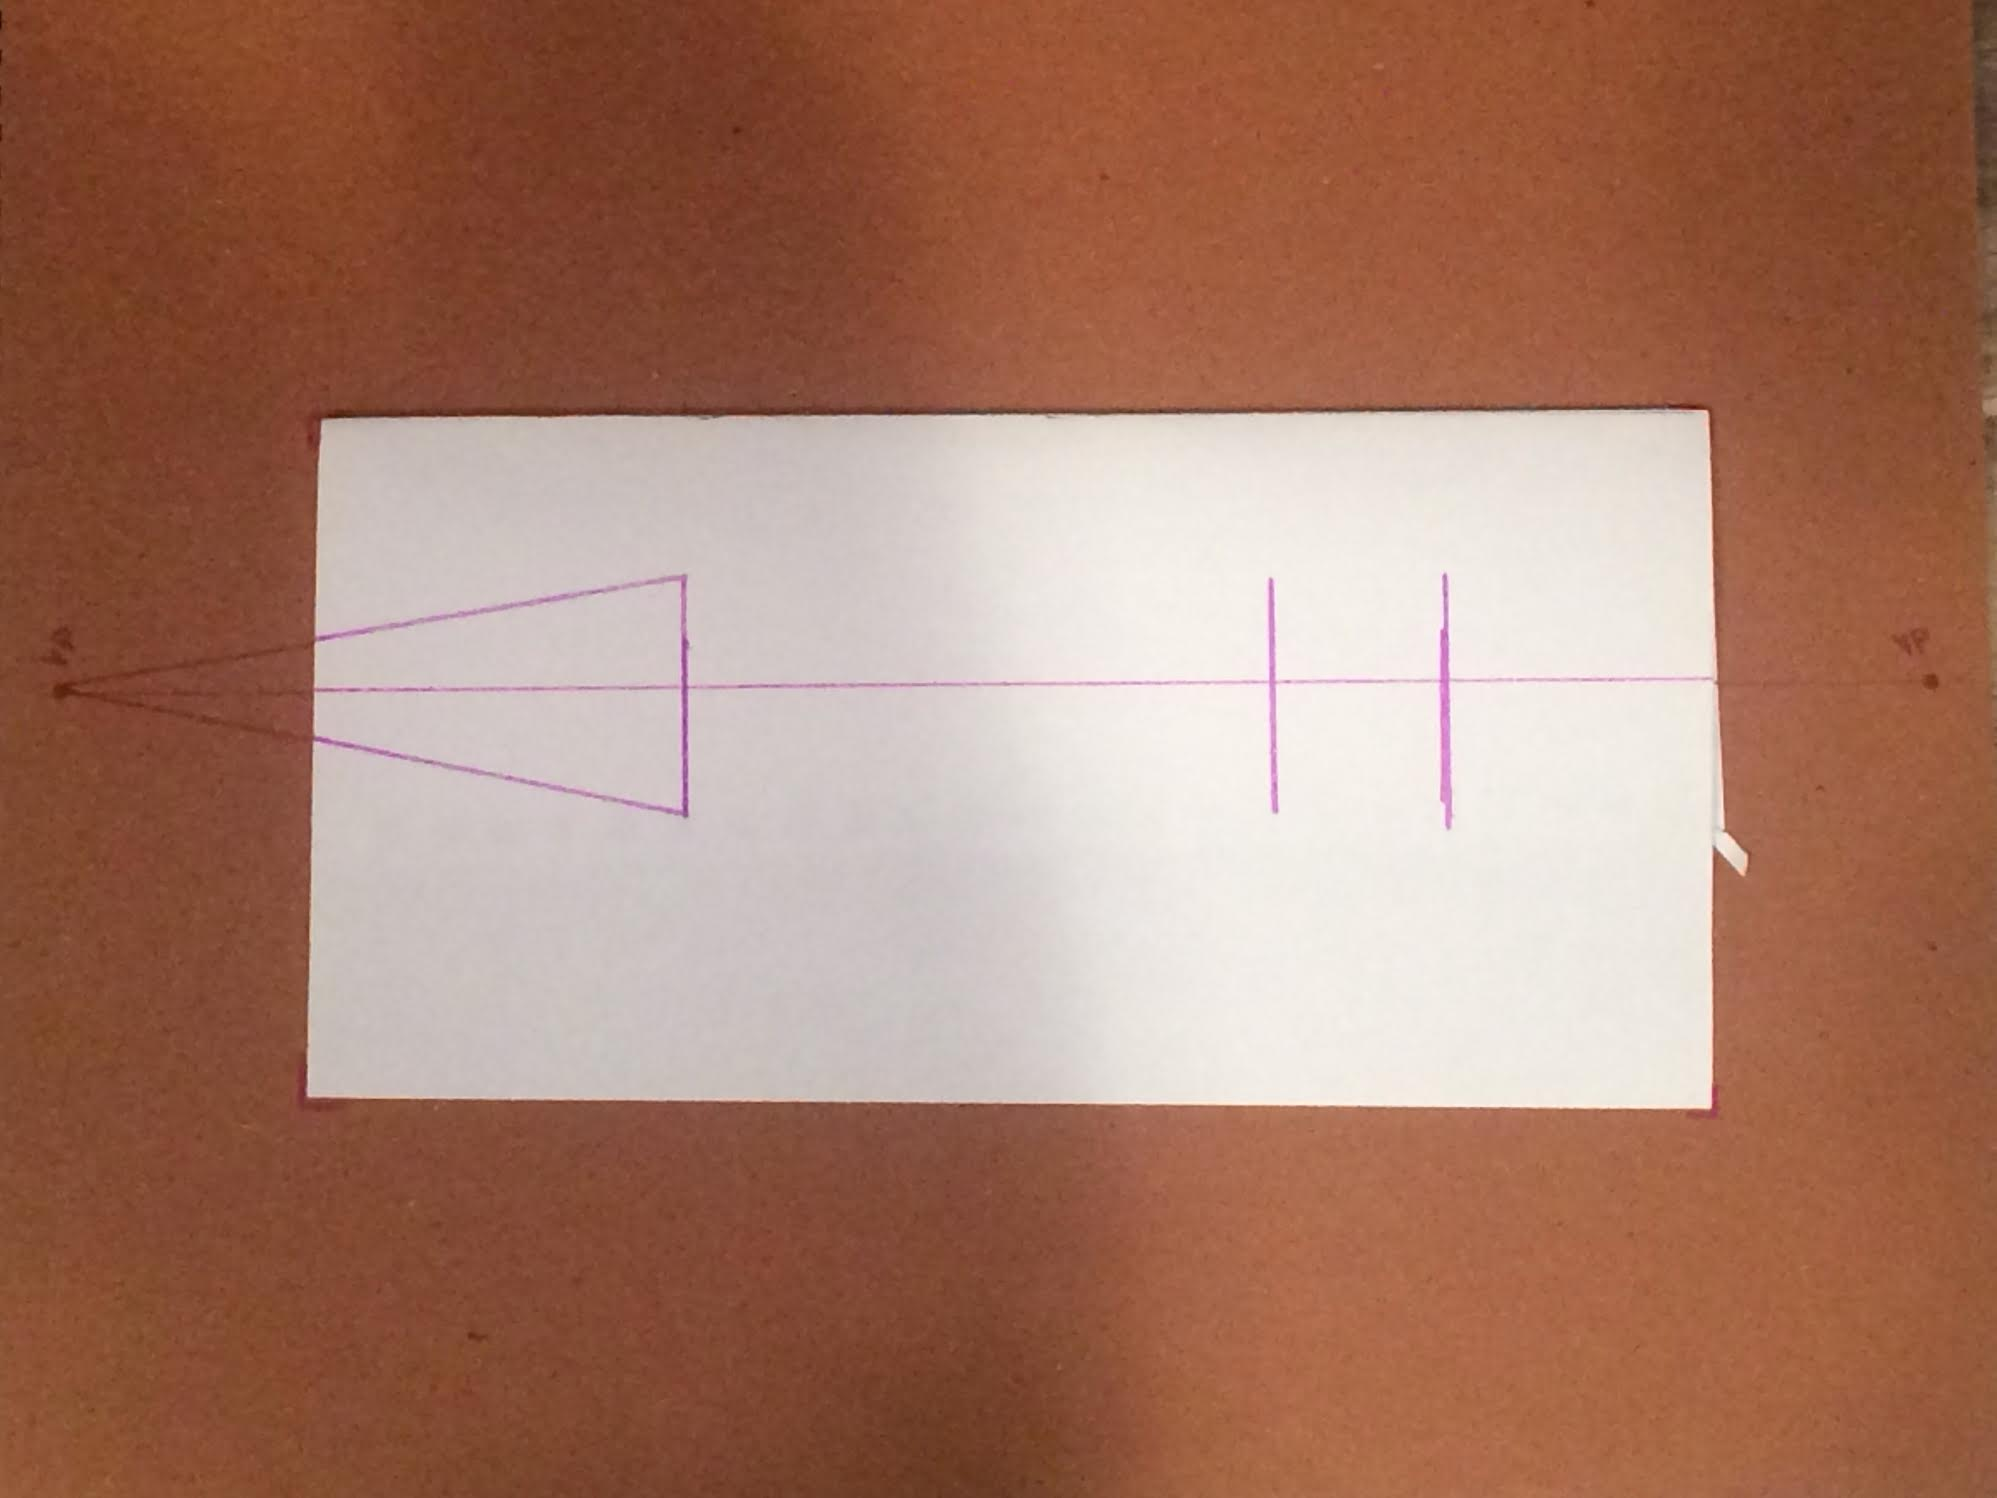 VP
VP